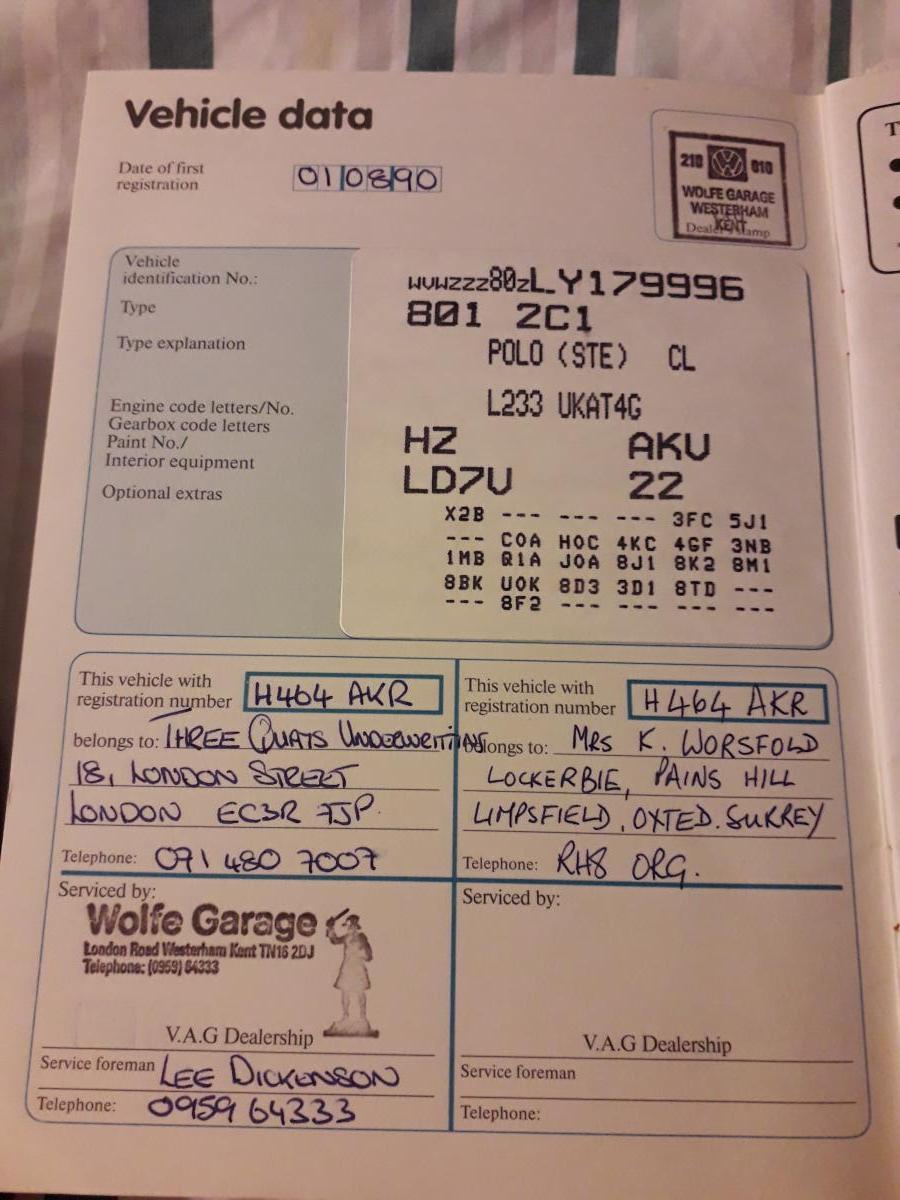 Vehicle data
Date of first
registration
010890
210 010
WOLFE GARAGE
WESTERHAM
KENT
Dealer's stamp
Vehicle
identification No.:
WVWZZZ80ZLY179996
Type
801 2C1
Type explanation
POLO (STE) CL
L233 UKAT4G
Engine code letters/No.
Gearbox code letters
HZ AKV
Paint No./
Interior equipment
LD7V 22
Optional extras
X2B --- --- --- 3FC 5J1
--- COA HOC 4KC 4GF 3NB
1MB Q1A JOA 8J1 8K2 8M1
8BK UOK 8D3 3D1 8TD ---
--- 8F2 --- --- --- ---
This vehicle with
registration number H464 AKR
belongs to: THREE QUAYS UNDERWRITING
18, LONDON STREET
LONDON EC3R 7JP.
Telephone: 071 480 7007
Serviced by:
Wolfe Garage
London Road Westerham Kent TN16 2DJ
Telephone: (0959) 64333
V.A.G Dealership
Service foreman LEE DICKENSON
Telephone: 0959 64333
This vehicle with
registration number H464 AKR
belongs to: MRS K. WORSFOLD
LOCKERBIE, PAINS HILL
LIMPSFIELD, OXTED. SURREY
Telephone: RH8 ORG.
Serviced by:
V.A.G Dealership
Service foreman
Telephone: